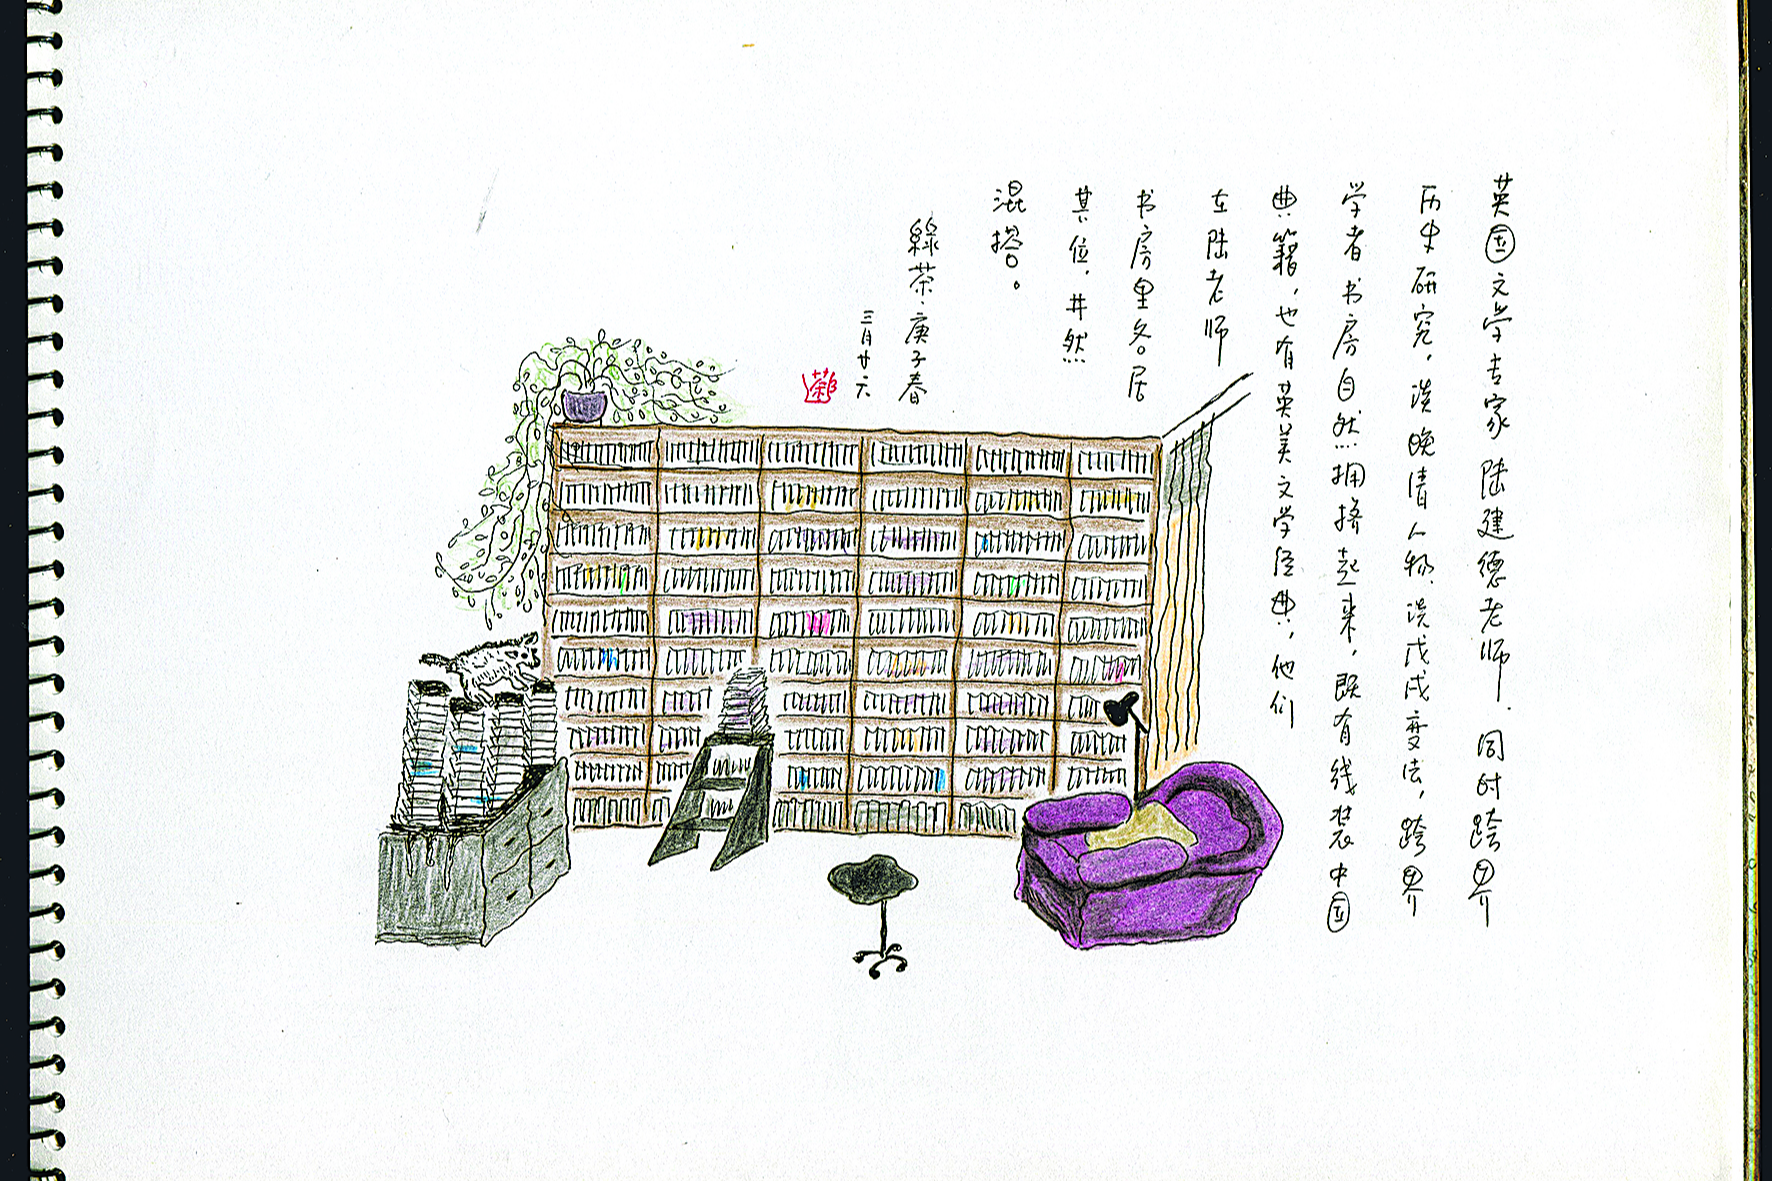 英国文学专家陆建德老师.同时跨界
历史研究,谈晚清人物.说戊戌变法,跨界
学者书房自然拥挤起来,既有线装中国
典籍,也有英美文学经典,他们
在陆老师
书房里各居
其位,井然
混搭。
綠茶.庚子春
三月廿六